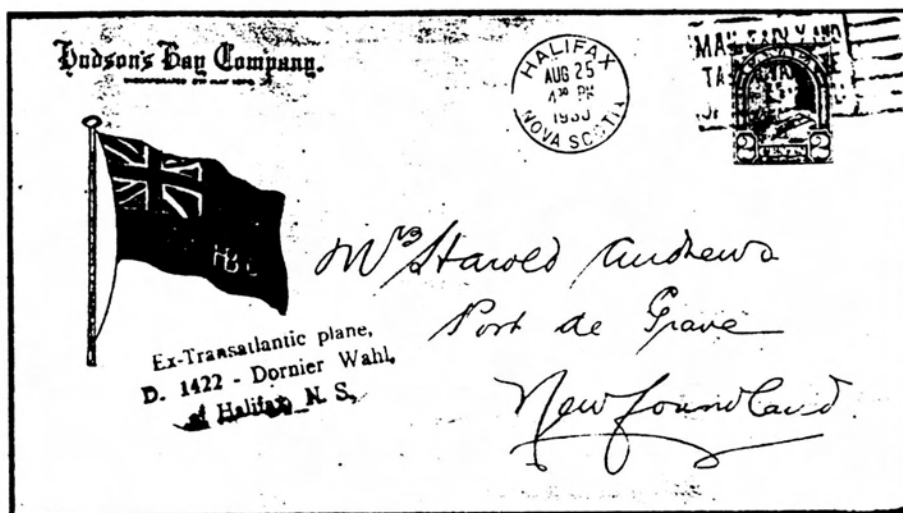 Hudson's Bay Company.
INCORPORATED 2ND MAY 1670.
HALIFAX
AUG 25
4 30 PM
1930
NOVA SCOTIA
MAIL EARLY AND
2 CENTS 2
HBC
Mrs Harold Andrews
Port de Grave
Newfoundland
Ex-Transatlantic plane,
D. 1422 - Dornier Wahl,
at Halifax N. S.